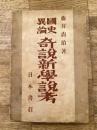 藤井尚治著
國史異論
奇説新學説考
日本書荘